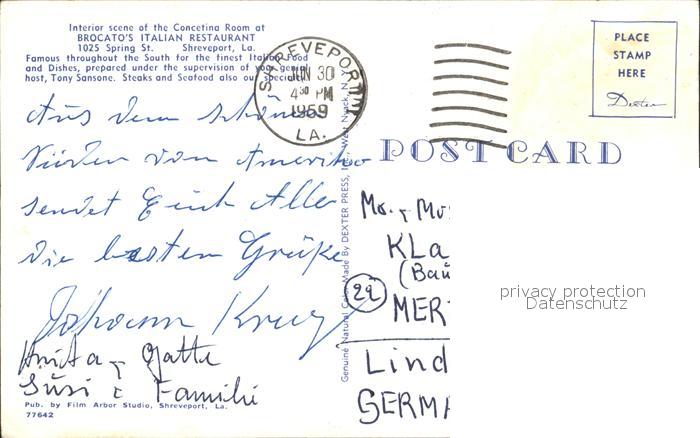 Interior scene of the Concetina Room at
BROCATO'S ITALIAN RESTAURANT
1025 Spring St. Shreveport, La.
Famous throughout the South for the finest Italian Food
and Dishes, prepared under the supervision of your genial
host, Tony Sansone. Steaks and Seafood also our specialty.
SHREVEPORT
JUN 30
4 30 PM
1959
LA.
PLACE
STAMP
HERE
Dexter
POST CARD
Aus dem schönen
Süden von Amerika
sendet Euch Allen
die besten Grüße
Johann Krug
Anita, Gatte
Susi & Familie
Pub. by Film Arbor Studio, Shreveport, La.
77642
Genuine Natural Color Made By DEXTER PRESS, INC. West Nyack, N.Y.
Mr. & Mrs
KLA
(Bau
22
MER
Lind
GERMA
privacy protection
Datenschutz